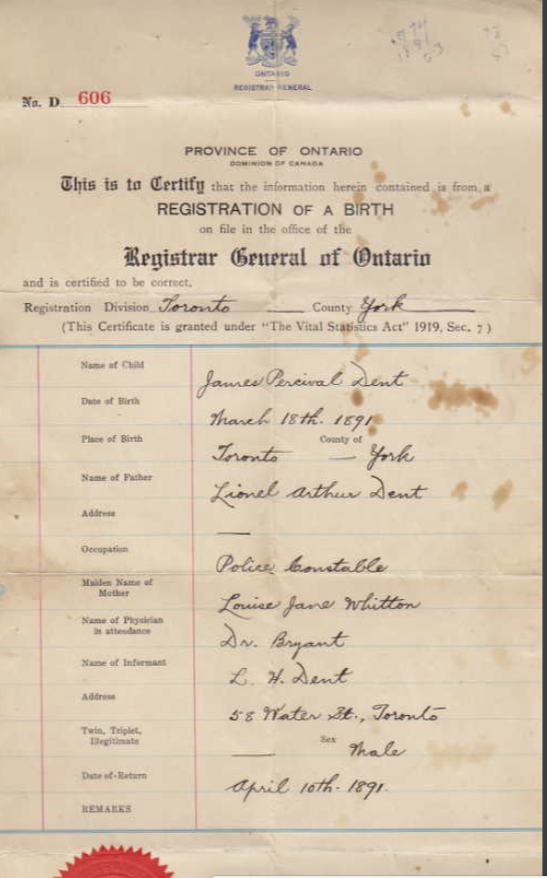 ONTARIO
REGISTRAR GENERAL
No. D 606
PROVINCE OF ONTARIO
DOMINION OF CANADA
This is to Certify that the information herein contained is from a
REGISTRATION OF A BIRTH
on file in the office of the
Registrar General of Ontario
and is certified to be correct.
Registration Division Toronto — County York
(This Certificate is granted under "The Vital Statistics Act" 1919, Sec. 7)
Name of Child
James Percival Dent
Date of Birth
March 18th. 1891
Place of Birth County of
Toronto — York
Name of Father
Lionel Arthur Dent
Address
—
Occupation
Police Constable
Maiden Name of
Mother
Louise Jane Whitton
Name of Physician
in attendance
Dr. Bryant
Name of Informant
L. H. Dent
Address
58 Water St., Toronto
Twin, Triplet,
Illegitimate
— Sex Male
Date of Return
April 10th. 1891.
REMARKS